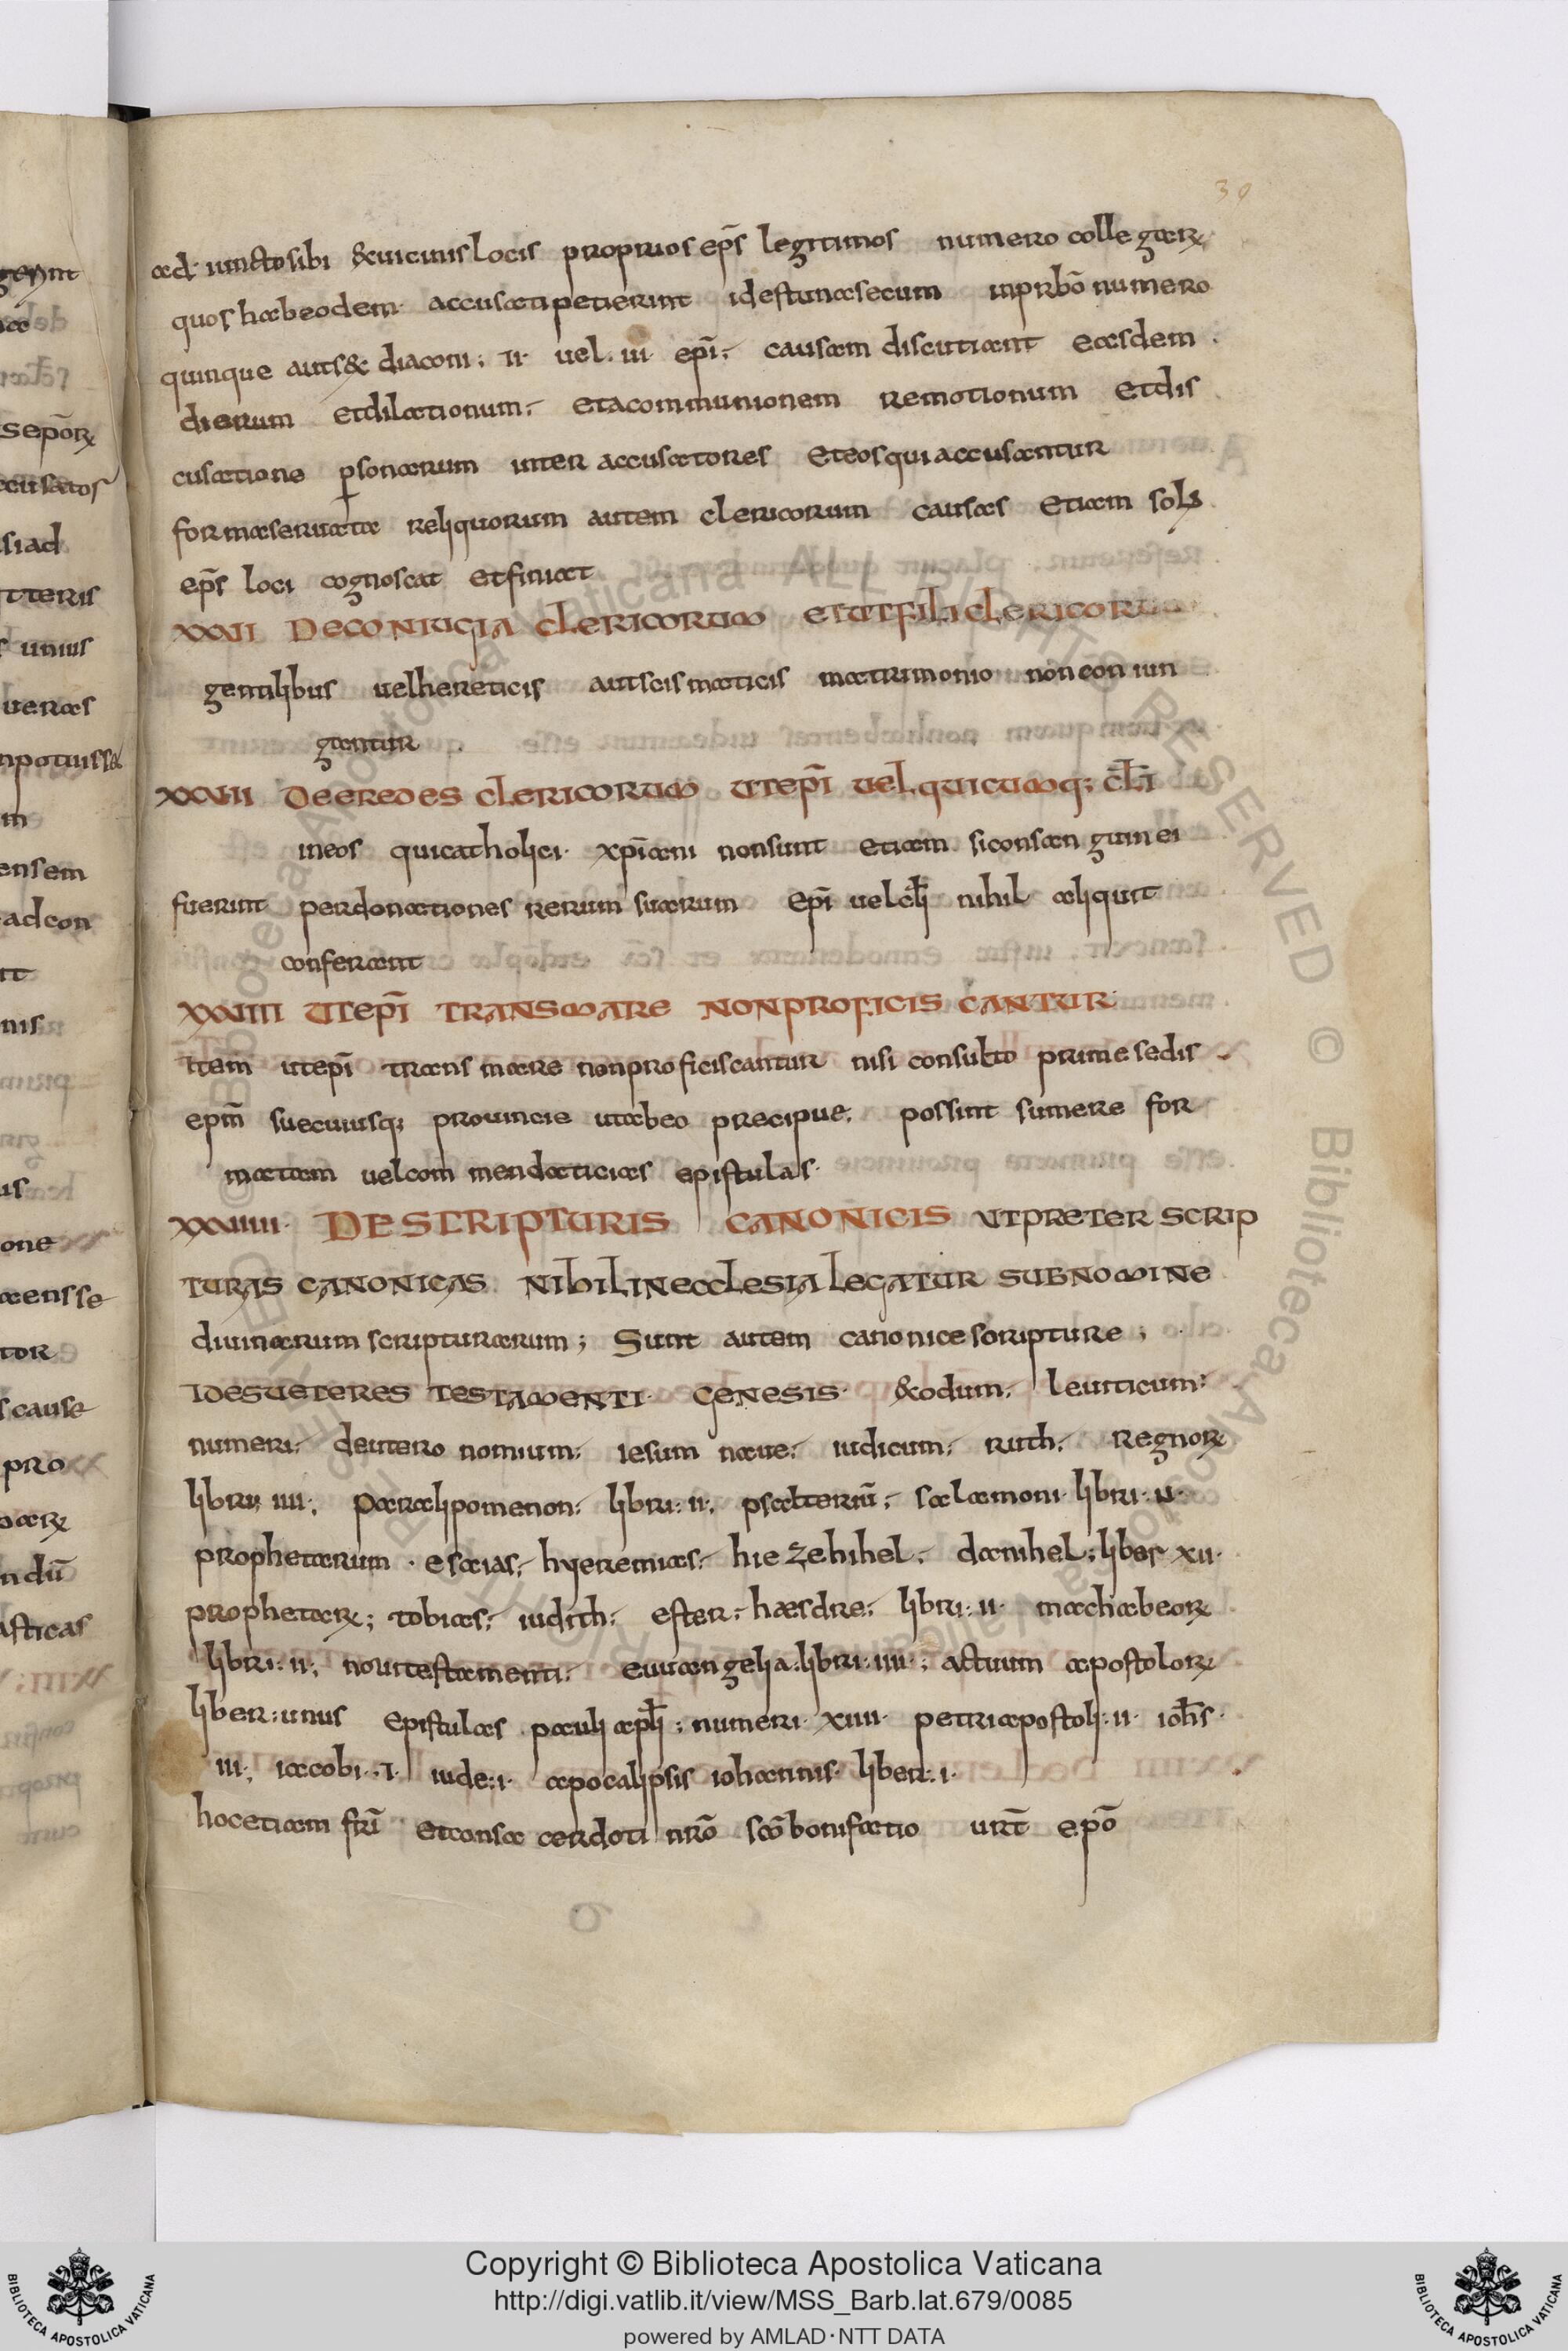 39
ad iunctosibi &uicinislocis proprios ep̄s legitimos numero collegar
quos habeodem accusati petierint idestunasecum inprb̄o numero
quinque auts& diaconi; II uel III ep̄i; causam discutiant easdem
dierum etdilationum; etacommunionem remotionum etdis
cusatione psonarum inter accusatores eteosquiaccusantur
formaseruata reliquorum autem clericorum causas etiam solus
ep̄s loci cognoscat etfiniat
XXVII DECONIUGIA CLERICORUM ETUTFILICLERICORUM
gentilibus uelhereticis autscismaticis matrimonio nonconiun
gantur
XXVIII DEEREDES CLERICORUM UTEP̄I UELQUICUMQ; CL̄I
ineos quicatholici xp̄iani nonsunt etiam siconsanguinei
fuerint perdonationes rerum suarum ep̄i uelcl̄i nihil aliquit
conferant
XXVIIII UTEP̄I TRANSMARE NONPROFICISCANTUR
Item utep̄i transmare nonproficiscantur nisi consulto prime sedis
ep̄m suecuiusq; prouincie utabeo precipue; possint sumere for
matam uelcommendaticias epistulas
XXVIIIII DESCRIPTURIS CANONICIS UTPRETER SCRIP
TURAS CANONICAS NIHILINECCLESIALEGATUR SUBNOMINE
diuinarum scripturarum; Sunt autem canonicescripture;
IDESUETERES TESTAMENTI GENESIS &odum; leuiticum:
numeri; deuteronomium; iesum naue; iudicum; ruth; regnor
librii IIII; paralipomenon; libri: II; psalteriū; salamoni libri: II
prophetarum esaias; hyeremias; hiezehihel; danihel; liber XII
prophetar; tobias; iudith; ester; haesdre; libri: II machabeor
libri: II; nouitestamenti; euuangelia: libri: IIII; actuum apostolor
liber: unus epistulas pauli apl̄i; numeri XIIII petriapostoli: II ioh̄s
III; iacobi: I iude: I apocalipsis iohannis liber: I
hocetiam fr̄i etconsacerdoti nr̄o sc̄o bonifatio urt̄ ep̄o
Copyright © Biblioteca Apostolica Vaticana
http://digi.vatlib.it/view/MSS_Barb.lat.679/0085
powered by AMLAD·NTT DATA
BIBLIOTECA APOSTOLICA VATICANA
BIBLIOTECA APOSTOLICA VATICANA